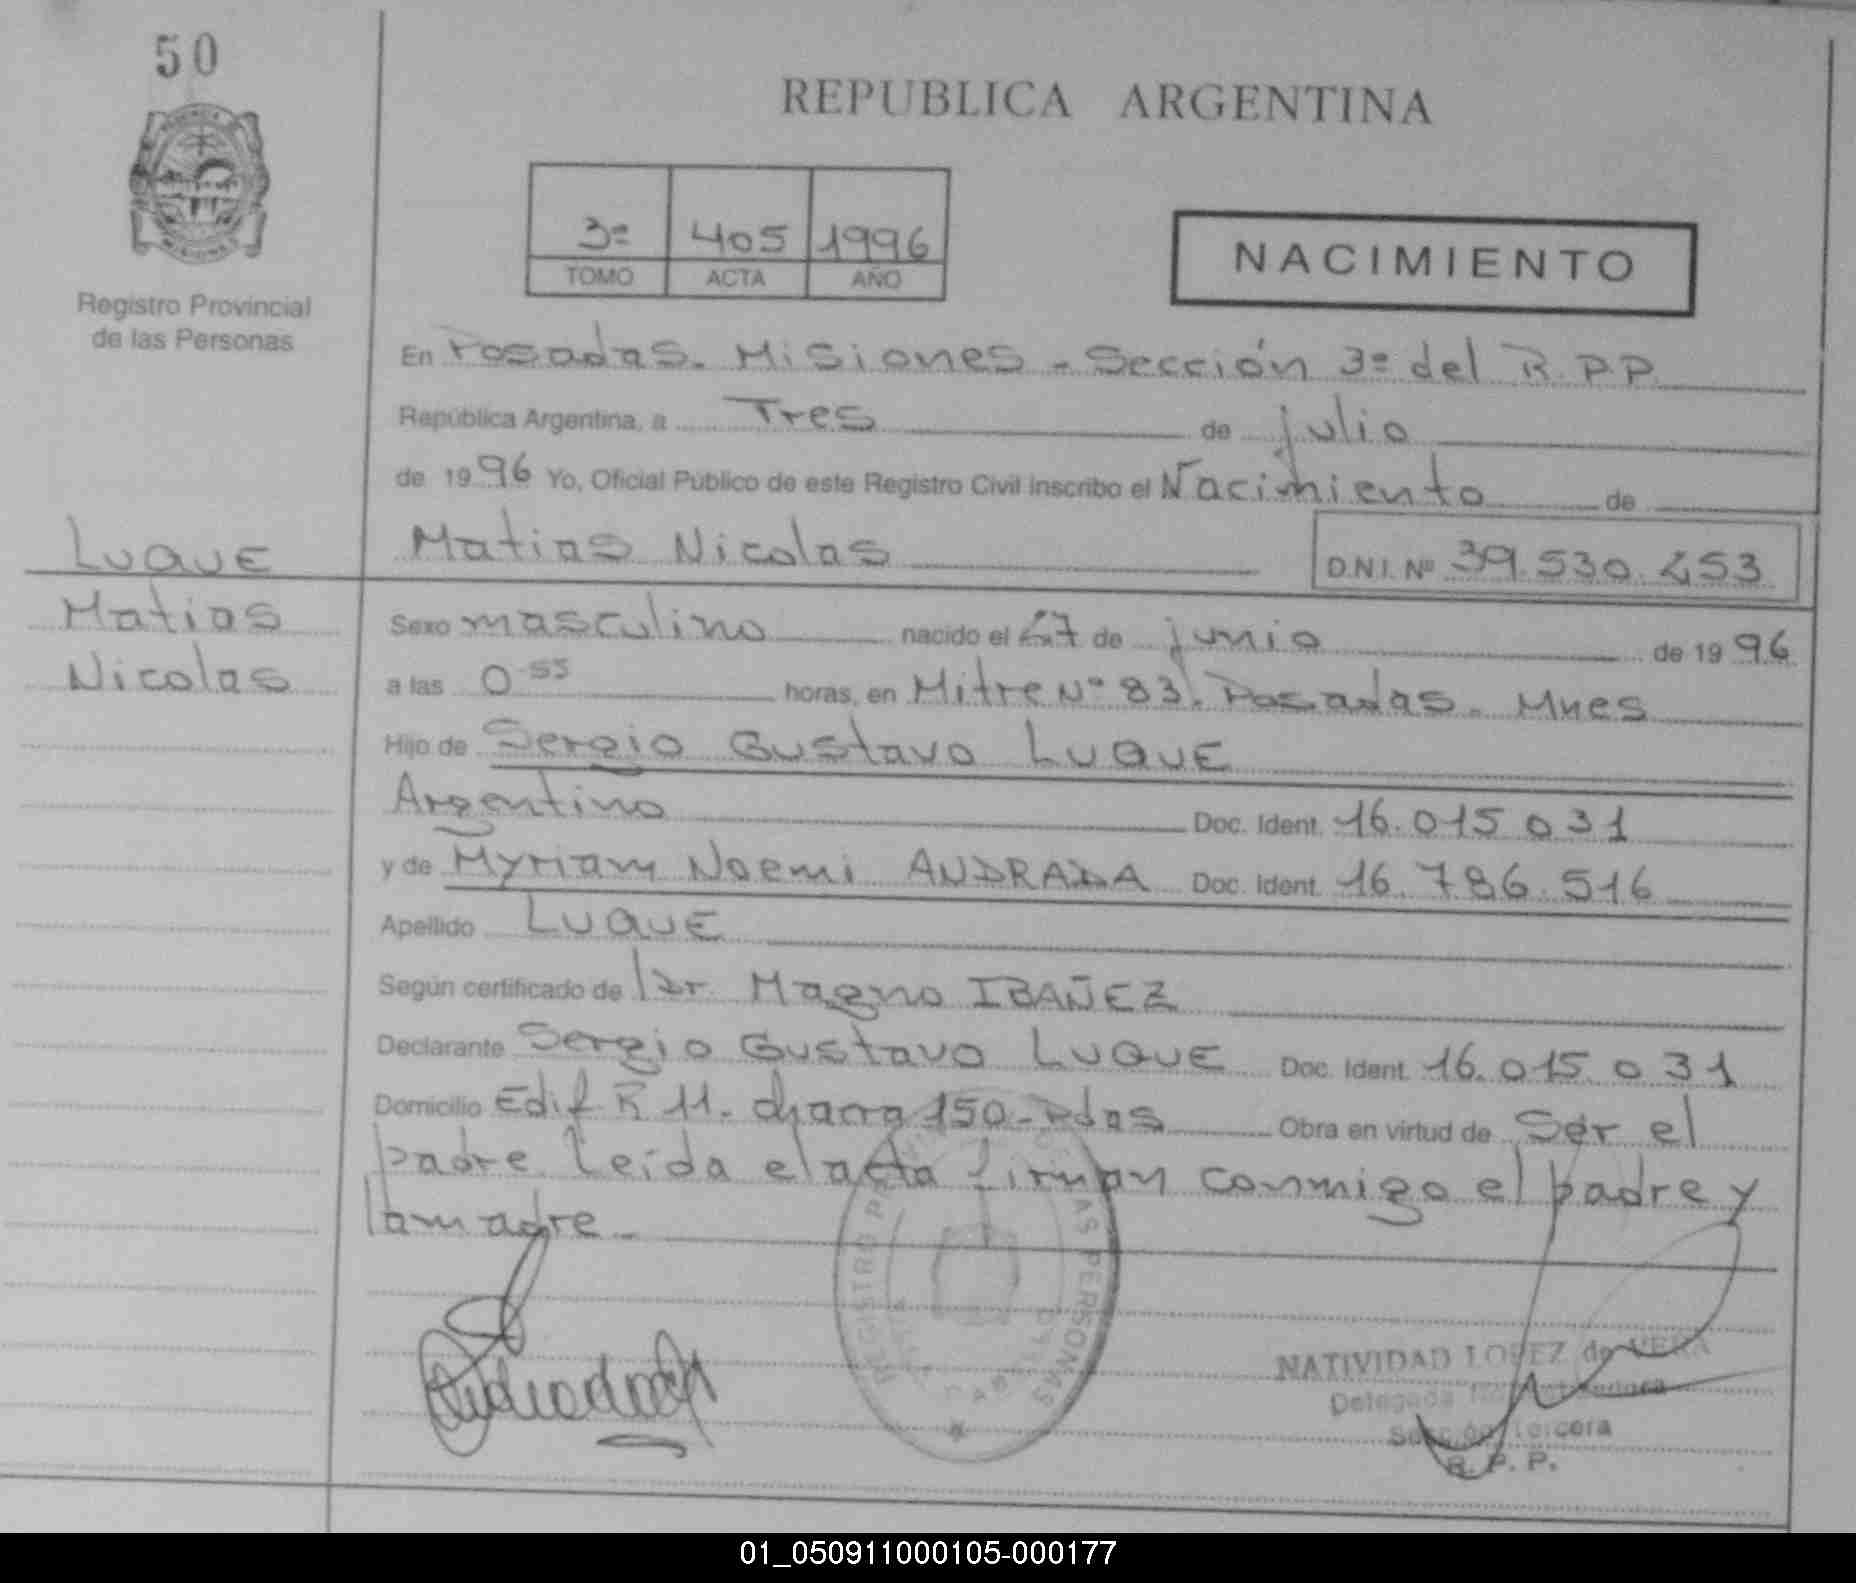 50
REPUBLICA ARGENTINA
3º 405 1996
TOMO ACTA AÑO
NACIMIENTO
Registro Provincial
de las Personas
En Posadas. Misiones - Sección 3º del R.P.P.
República Argentina, a Tres de julio
de 1996 Yo, Oficial Público de este Registro Civil inscribo el Nacimiento de
LUQUE Matias Nicolas D.N.I. Nº 39.530.253
Matias
Nicolas
Sexo masculino nacido el 27 de junio de 1996
a las 0 55 horas, en Mitre Nº 83. Posadas. Mnes
Hijo de Sergio Gustavo LUQUE
Argentino Doc. Ident. 16.015.031
y de Myriam Noemi ANDRADA Doc. Ident. 16.786.516
Apellido LUQUE
Según certificado de Dr. Magno IBAÑEZ
Declarante Sergio Gustavo LUQUE Doc. Ident. 16.015.031
Domicilio Edif R 11. chacra 150 - Pdas Obra en virtud de Ser el
padre Leída el acta firman conmigo el padre y
la madre.
REGISTRO LAS PERSONAS
NATIVIDAD LOPEZ de VERA
Delegada
Sección Tercera
R. P. P.
01_050911000105-000177